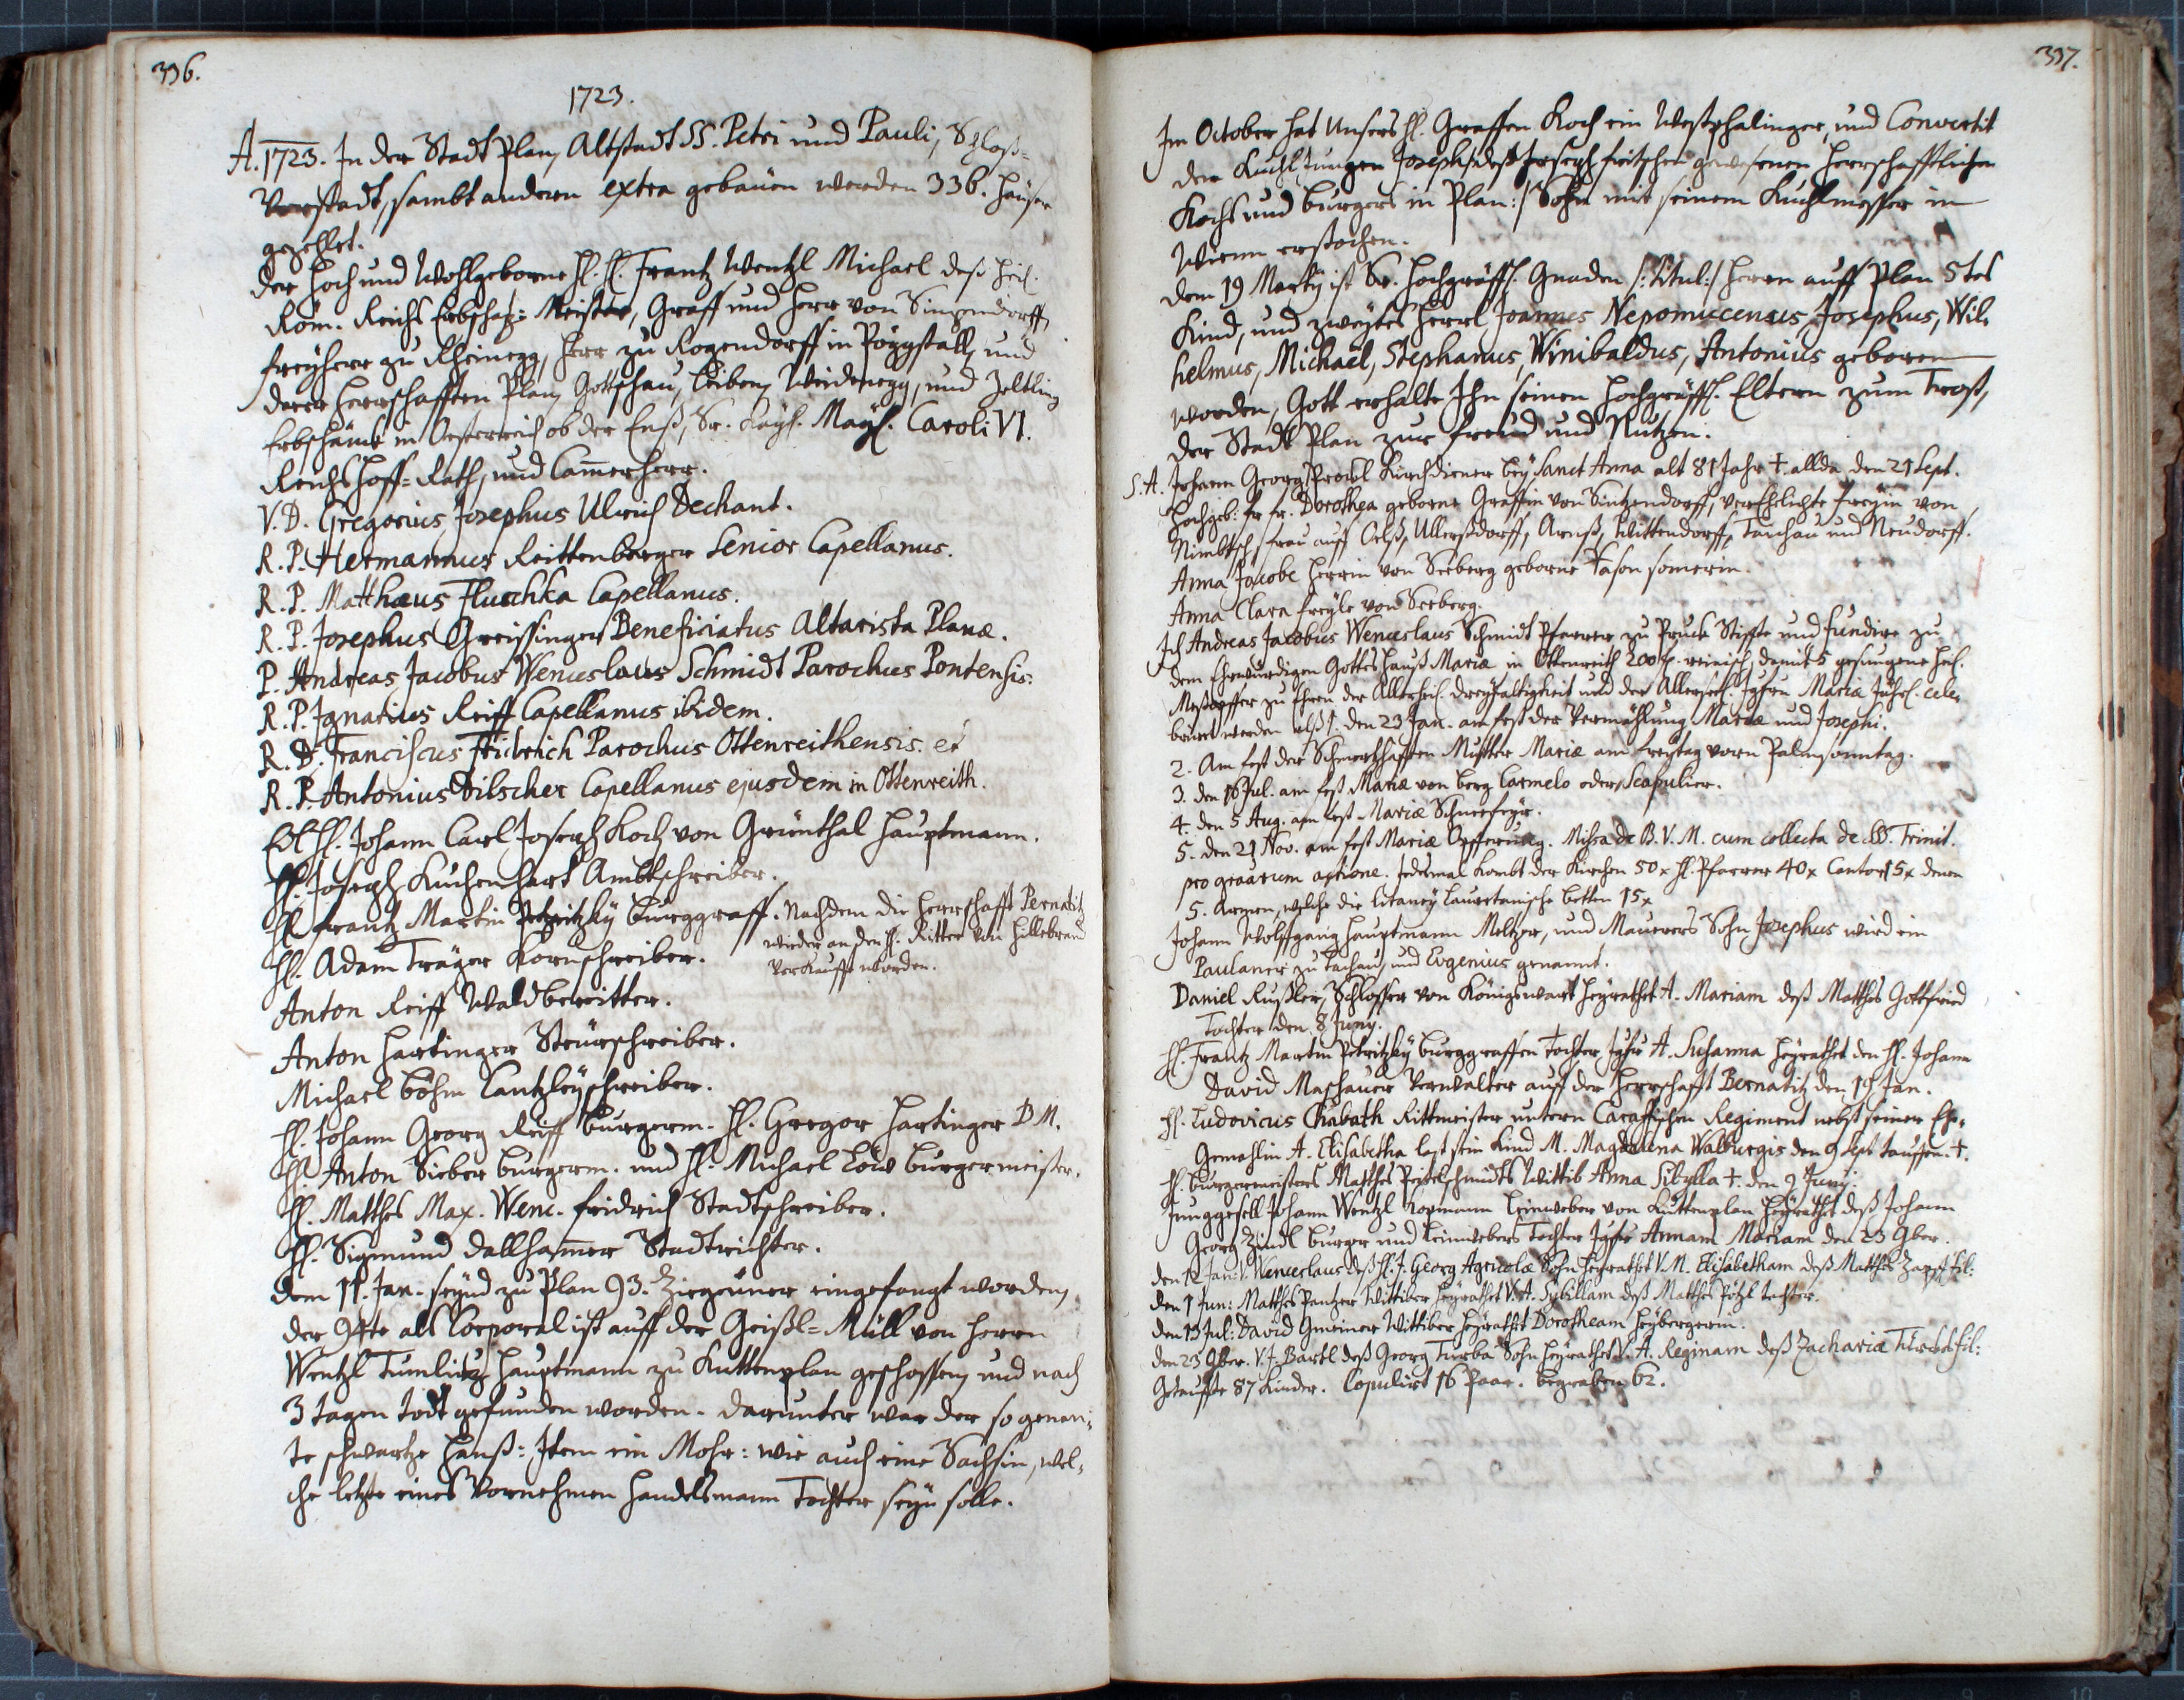 336.
1723.
A. 1723. In der Stadt Plan, Altstadt SS. Petri und Pauli, Schloß-
Vorstadt, sambt andern extra gebauen werden 336. Häuser
gezehlet.
Der Hoch und Wohlgeborne H. H. Frantz Wentzl Michael deß Heil.
Röm. Reichs Erbschatz-Meister, Graff und Herr von Sinzendorff,
Freyherr zu Rheinegg, Herr zu Rogendorff in Pöggstall, und
derer Herrschafften Plan, Gottschau, Leiben, Weidenegg, und Zeltling
Erbschänk in Oesterreich ob der Enß, Sr. Kayl. Mayl. Caroli VI.
Reichs Hoff-Rath, und Cammerherr.
V. D. Gregorius Josephus Ulrich Dechant.
R. P. Hermannus Reittenberger Senior Capellanus.
R. P. Matthæus Fluschka Capellanus.
R. P. Josephus Greissinger Beneficiatus Altarista Planæ.
P. Andreas Jacobus Wenceslaus Schmidt Parochus Pontensis.
R. P. Ignatius Reiff Capellanus ibidem.
R. D. Franciscus Fridrich Parochus Ottenreithensis. et
R. P. Antonius Dilscher Capellanus ejusdem in Ottenreith.
Edl H. Johann Carl Joseph Koch von Grünthal Hauptmann.
H. Joseph Kuchenhart Ambtschreiber.
H. Frantz Martin Petritzky Burggraff. Nachdem die Herrschafft Pernatitz
wieder an den H. Ritter von Hillebrand
verkaufft worden.
H. Adam Träger Kornschreiber.
Anton Reiff Waldbereitter.
Anton Hartinger Steurschreiber.
Michael Böhm Cantzleyschreiber.
H. Johann Georg Reiff Burgerm. H. Gregor Hartinger BM.
H. Anton Sieber Burgerm. und H. Michael Löw Burgermeister.
H. Matthes Max. Wenc. Fridrich Stadtschreiber.
H. Sigmund Dallhammer Stadtrichter.
Dem 11. Jan. seynd zu Plan 93. Ziegeuner eingefangt worden,
der 94te als Corporal ist auff der Geißl-Müll von Herrn
Wentzl Tumlirtz Hauptmann zu Kuttenplan geschossen, und nach
3 Tagen todt gefunden worden. Darunter war der so genan-
te schwartze Hanß: Item ein Mohr: wie auch eine Sachsin, wel-
che letzte eines Vornehmen Handelsmann Tochter seyn solle.
337.
Im October hat Unsers H. Graffen Koch ein Westphalinger, und Convertit
den Kuchljungen Joseph, deß Joseph Fritschen gewesenen Herrschafftlichen
Kochs und Burgers in Plan :/ Sohn mit seinem Kuchlmesser in
Wienn erstochen.
Dem 19 Martij ist Sr. Hochgräffl. Gnaden /: titul :/ Herrn auff Plan 5tes
Kind, und zweytes Herrl Joannes Nepomucenus, Josephus, Wil-
helmus, Michaël, Stephanus, Winibaldus, Antonius geboren
worden, Gott erhalte Ihn seinen Hochgräffl. Eltern zum Trost,
der Stadt Plan zur Freud und Nutzen.
S. A. Johann Georg Prokl Kirchdiener bey Sanct Anna alt 81 Jahr †. allda den 21 Sept.
Hochgeb: Fr. Fr. Dorothea geborne Gräffin von Sintzendorff, verEhlichte Freyin von
Nimbtsch, Frau auff Oelß, Ullerßdorff, Arnß, Wittendorff, Tarchau und Neudorff.
Anna Jacobe Herrin von Seeberg geborne
Anna Clara Freyle von Seeberg.
Ich Andreas Jacobus Wenceslaus Schmidt Pfarrer zu Pruck Stiffte und Fundire zu
dem Ehrwürdigen Gottes Hauß Mariæ in Ottenreith 200 fl. reinisch, damit 5 gesungene Heil.
Meßopffer zu Ehren der Allerheil. Dreyfaltigkeit und der Allerseel. Jgfrau Mariæ Jährl. cele-
brirt werden alß 1. den 23 Jan. am Fest der Vermählung Mariæ und Josephi.
2. Am Fest der Schmertzhafften Mutter Mariæ am Freytag vorn Palmsonntag.
3. Den 16 Jul. am Fest Mariæ von berg Carmelo oder Scapulier.
4. Den 5 Aug. am Fest Mariæ Schneefeyr.
5. Den 21 Nov. am Fest Mariæ Opfferung. Missa de B. V. M. cum collecta de SS. Trinit.
pro gratiarum actione. Jedesmal kombt der Kirchen 50 x H. Pfarrer 40 x Cantor 15 x denen
5. Armen, welche die Litaney Lauretanische betten 15 x
Johann Wolffgang Hauptmann Meltzer, und Maurers Sohn Josephus wird ein
Paulaner zu Tachau, und Eugenius genannt.
Daniel Rußler, Schlosser von Königswart heyrathet A. Mariam deß Matthes Gottfried
Tochter den 8 Juny.
H. Frantz Martin Petritzky Burggraffen Tochter Jgfr A. Susanna heyrathet den H. Johann
David Maschauer Verwalter auff der Herrschafft Bernatitz den 19 Jan.
H. Ludovicus Chabath Rittmeister untern Caraffischen Regiment nebst seiner Ehe-
Gemahlin A. Elisabetha last sein Kind M. Magdalena Walburgis den 9 Sept tauffen. †.
H. Burgermeisters Matthes Peitelschmidts Wittib Anna Sibylla †. den 2 Juny.
Junggesell Johann Wentzl Hoymann Leinweber von Kuttenplan heyrathet deß Johann
Georg Zindl Burger und Leinwebers Tochter Jgfr Annam Mariam den 23 9ber.
den 12 Jan: V. Wenceslaus deß H. J. Georg Agricolæ Sohn heyrathet V. M. Elisabetham deß Matthes Zapff fil:
Den 1 Jun: Matthes Pantzer Wittiber heyrathet V. A. Sybillam deß Matthes Pötzl tochter.
Den 13 Jul: David Gmeiner Wittiber heyrathet Dorotheam Heybergerin.
Den 23 9ber. V. J. Bartl deß Georg Turba Sohn heyrathet V. A. Reginam deß Zachariæ fil:
Getauffte 87 Kinder. Copulirt 16 Paar. begraben 62.